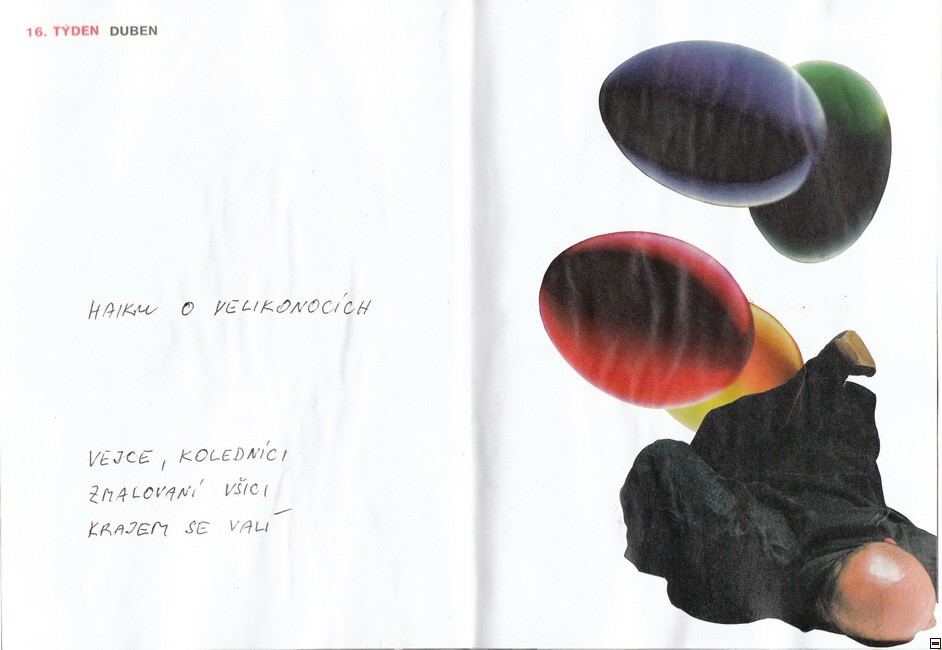 16. TÝDEN DUBEN
HAIKU O VELIKONOCÍCH
VEJCE, KOLEDNÍCI
ZMALOVANÍ VŠICI
KRAJEM SE VALÍ